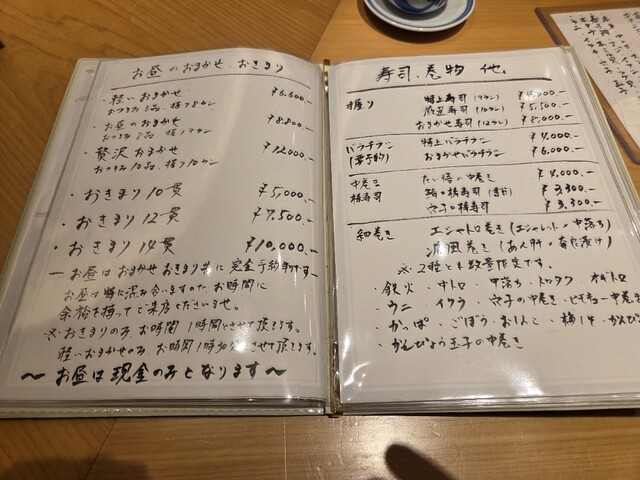 お昼のおまかせ、おきまり
・軽いおまかせ ¥6,600.-
おつまみ5品、握り8カン
・お昼のおまかせ ¥8,800.-
おつまみ 品、握り9カン
・贅沢おまかせ ¥12,000.-
おつまみ10品、握り10カン
・おきまり10貫 ¥5,000.-
・おきまり12貫 ¥7,500.-
・おきまり14貫 ¥10,000.-
ーお昼はおまかせおきまり共に完全予約制ですー
お昼は特に混み合いますのでお時間に
余裕を持ってご来店くださいませ。
※おきまりのみ、お時間1時間とさせて頂きます。
軽いおまかせのみ、お時間1時 させて頂きます。
〜お昼は現金のみとなります〜
寿司、巻物 他
握り 特上寿司 (9カン) ¥4,000.-
寿司 (10カン) ¥5,500.-
おまかせ寿司 (12カン) ¥8,000.-
バラチラシ 特上バラチラシ ¥4,000.-
(要予約) おまかせバラチラシ ¥6,000.-
中巻き たい 巻の中巻き ¥4,000.-
棒寿司 の棒寿司 ¥3,300.-
穴子の棒寿司 ¥3,300.-
細巻き エシャトロ巻き(エシャレット、中落ち)
巻き(あん肝、奈良漬け)
※2種とも数量限定です。
・鉄火、中トロ、中落ち、トロタク、ネギトロ
・ウニ、イクラ、穴子の中巻き、ヒモキュー中巻き
・かっぱ、ごぼう、おしんこ、梅しそ、かんぴ
・かんぴょう玉子の中巻き